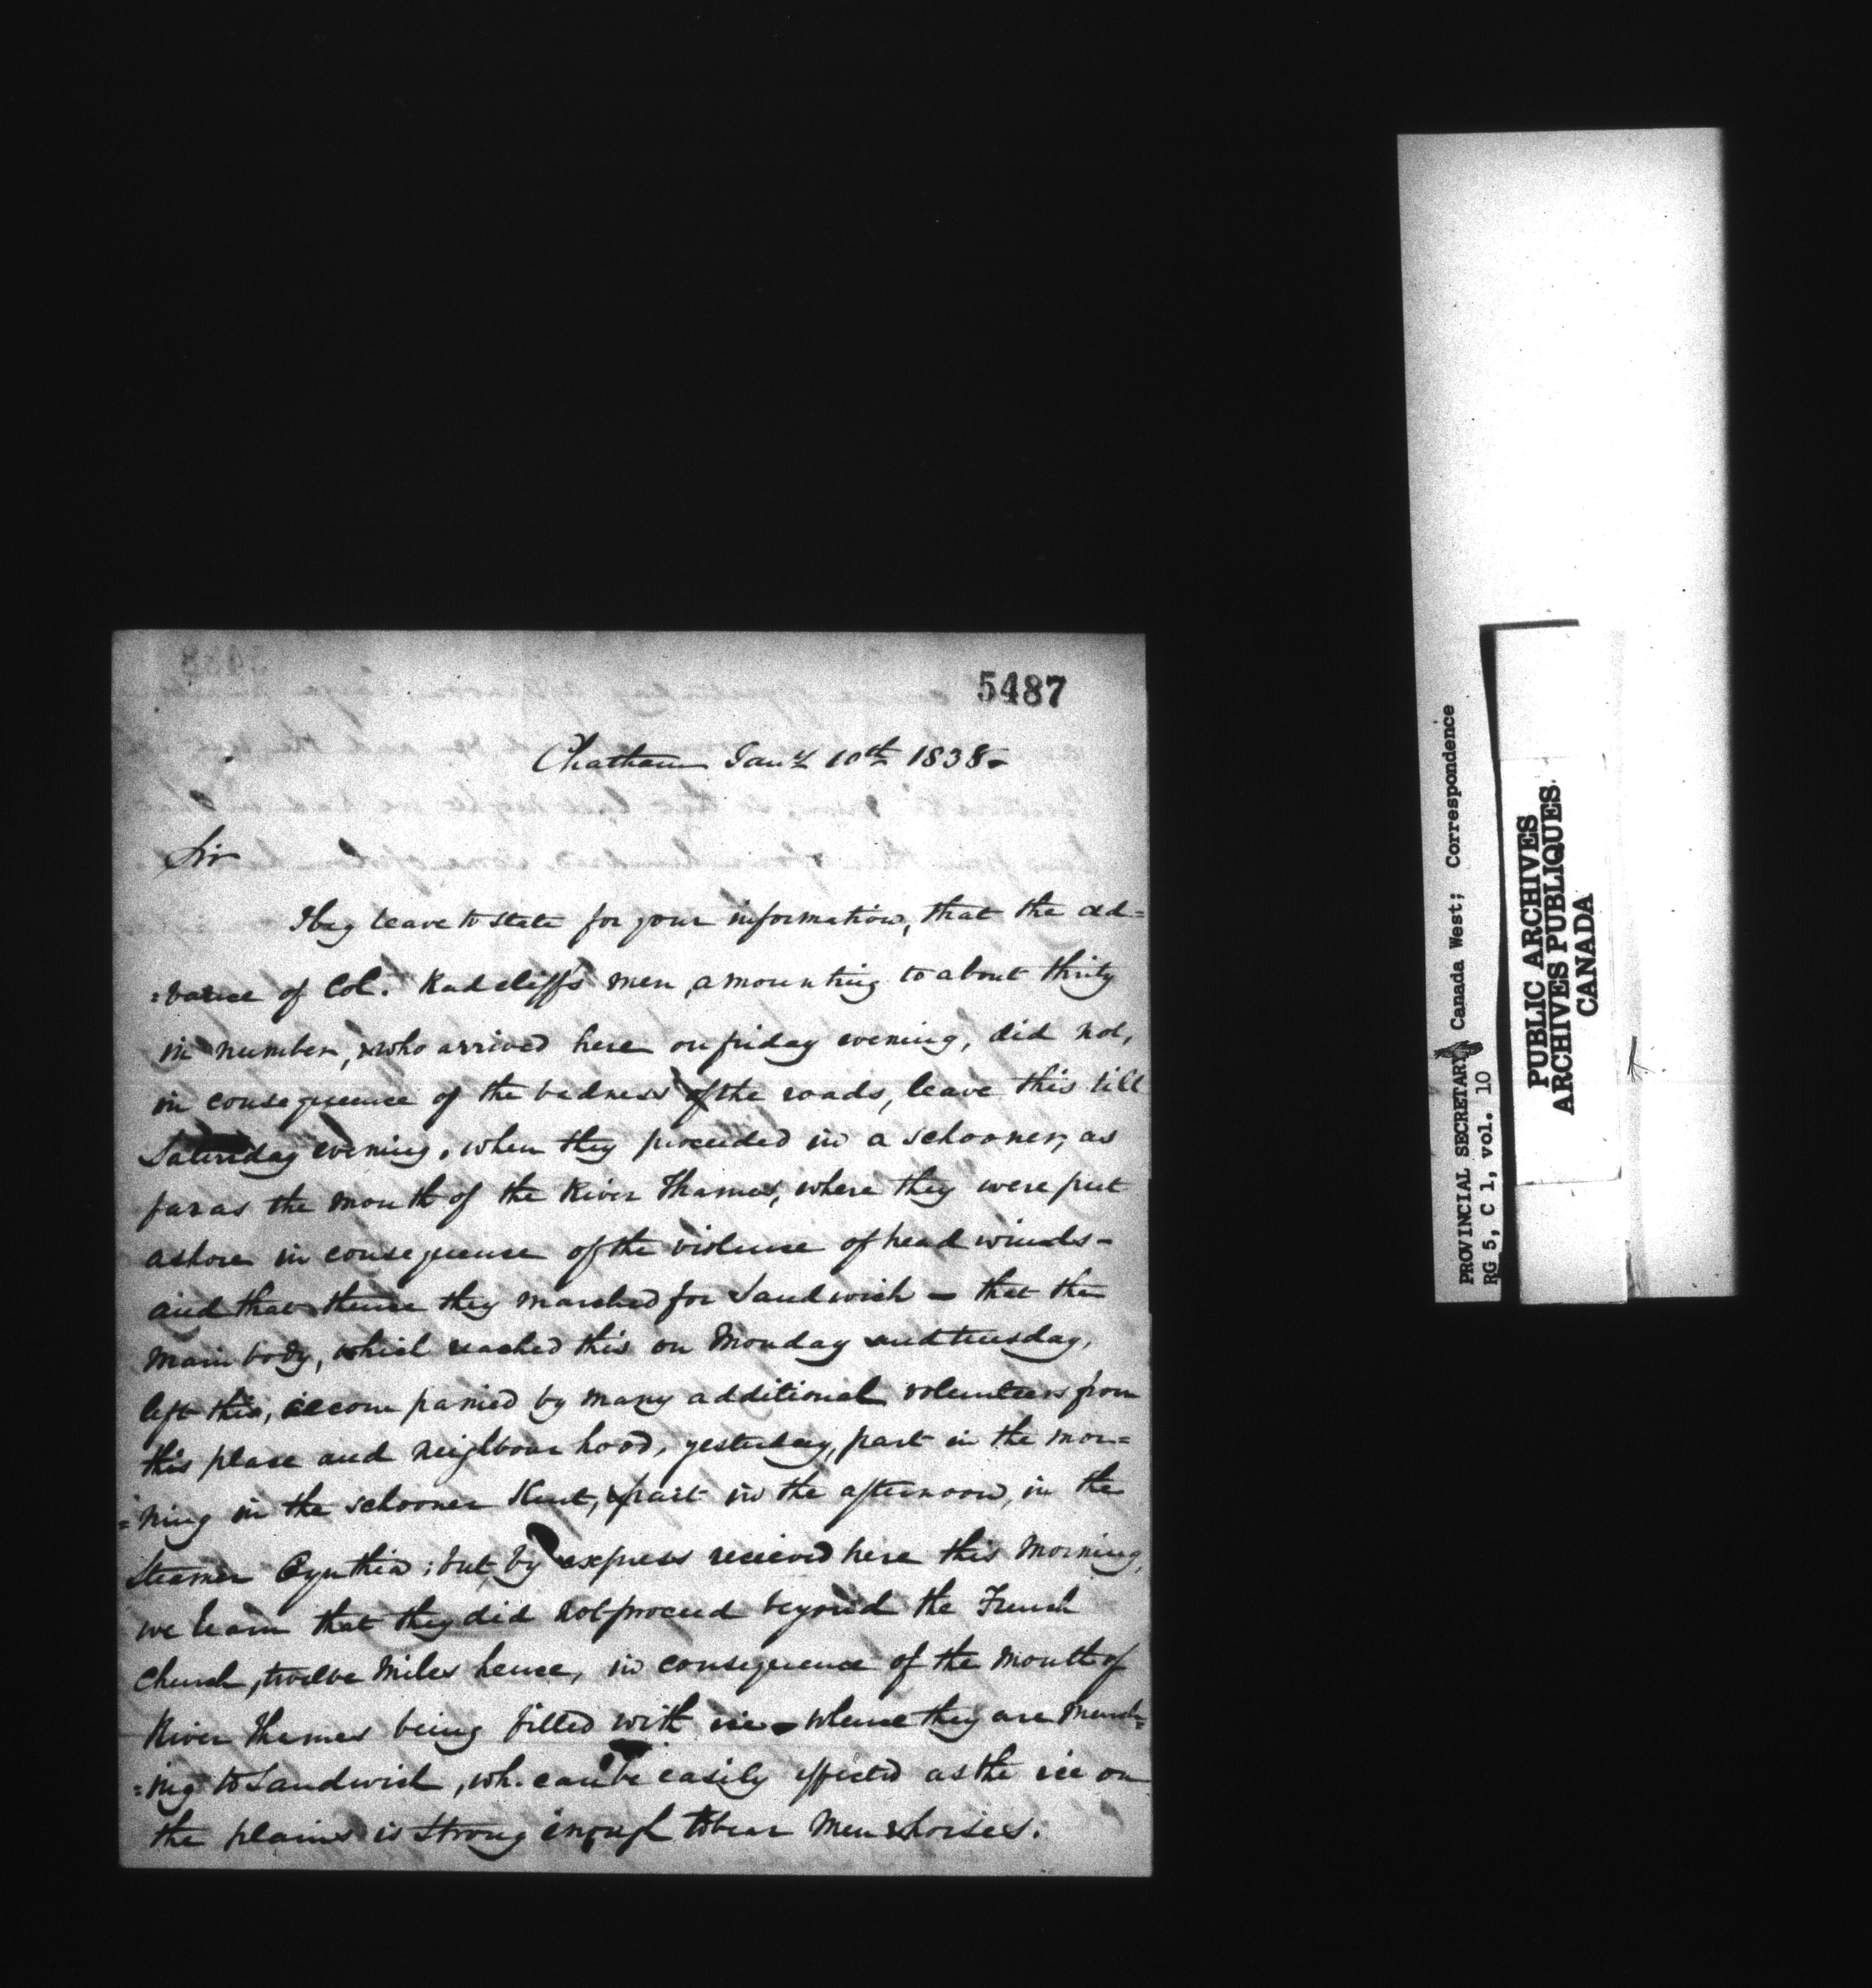 5487
Chatham Jany 10th 1838-
Sir
I beg leave to state for your information, that the ad=
=vance of Col. Radcliff's men, amounting to about thirty
in number, & who arrived here on friday evening, did not,
in consequence of the badness of the roads, leave this till
Saturday evening, when they proceeded in a schooner, as
far as the mouth of the River Thames, where they were put
ashore in consequence of the violence of head winds-
and that thence they marched for Sandwich - that the
main body, which reached this on Monday and tuesday,
left this, accompanied by many additional volunteers from
this place and neighbourhood, yesterday, part in the mor=
=ning in the schooner Kent, & part in the afternoon, in the
Steamer Cynthia; but, by express recieved here this morning,
we learn that they did not proceed beyond the French
Church, twelve miles hence, in consequence of the mouth of
River Thames being filled with ice - whence they are march=
=ing to Sandwich, wh. can be easily effected as the ice on
the plains is strong enough to bear men & horses.
PROVINCIAL SECRETARY Canada West; Correspondence
RG 5, C 1, vol. 10
PUBLIC ARCHIVES
ARCHIVES PUBLIQUES
CANADA